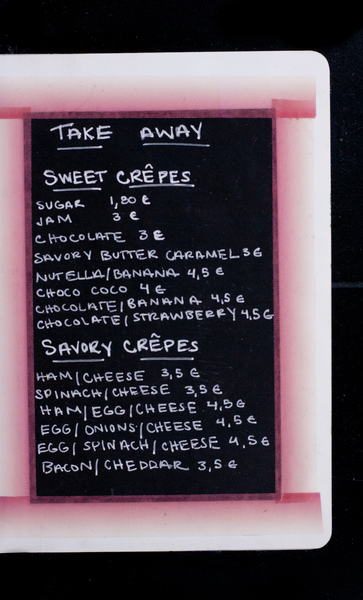 TAKE AWAY
SWEET CRÊPES
SUGAR 1,80 €
JAM 3 €
CHOCOLATE 3 €
SAVORY BUTTER CARAMEL 3 €
NUTELLA/BANANA 4,5 €
CHOCO COCO 4 €
CHOCOLATE/BANANA 4,5 €
CHOCOLATE/STRAWBERRY 4,5 €
SAVORY CRÊPES
HAM/CHEESE 3,5 €
SPINACH/CHEESE 3,5 €
HAM/EGG/CHEESE 4,5 €
EGG/ONIONS/CHEESE 4,5 €
EGG/SPINACH/CHEESE 4,5 €
BACON/CHEDDAR 3,5 €